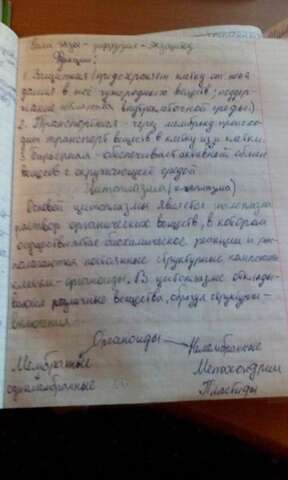 Функции:
1. Защитная (предохраняет клетку от попа
дания в неё чужеродных веществ; поддер-
внутриклеточной среды)
2. Транспортная - через мембрану происхо-
дит транспорт веществ в клетку и из клетки.
3. Барьерная - обеспечивает активный обмен
веществ с окружающей средой
Цитоплазма
Основой цитоплазмы является
раствор органических веществ, в котором
биохимические реакции и рас
полагаются постоянные структурные компоненты
клетки - органоиды. В цитоплазме отклады-
ваются различные вещества, образуя структуры-
включения...
Органоиды
Мембранные Немембранные
одномембранные Митохондрии
Пластиды